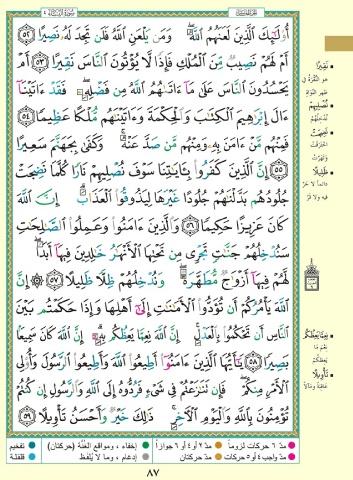 سُورَةُ النِّسَاءِ ٤
الجزء الخامس
أُولَٰئِكَ الَّذِينَ لَعَنَهُمُ اللَّهُ ۖ وَمَن يَلْعَنِ اللَّهُ فَلَن تَجِدَ لَهُ نَصِيرًا ﴿٥٢﴾
أَمْ لَهُمْ نَصِيبٌ مِّنَ الْمُلْكِ فَإِذًا لَّا يُؤْتُونَ النَّاسَ نَقِيرًا ﴿٥٣﴾ أَمْ
يَحْسُدُونَ النَّاسَ عَلَىٰ مَا آتَاهُمُ اللَّهُ مِن فَضْلِهِ ۖ فَقَدْ آتَيْنَا
آلَ إِبْرَاهِيمَ الْكِتَابَ وَالْحِكْمَةَ وَآتَيْنَاهُم مُّلْكًا عَظِيمًا ﴿٥٤﴾
فَمِنْهُم مَّنْ آمَنَ بِهِ وَمِنْهُم مَّن صَدَّ عَنْهُ ۚ وَكَفَىٰ بِجَهَنَّمَ سَعِيرًا
﴿٥٥﴾ إِنَّ الَّذِينَ كَفَرُوا بِآيَاتِنَا سَوْفَ نُصْلِيهِمْ نَارًا كُلَّمَا نَضِجَتْ
جُلُودُهُم بَدَّلْنَاهُمْ جُلُودًا غَيْرَهَا لِيَذُوقُوا الْعَذَابَ ۗ إِنَّ اللَّهَ
كَانَ عَزِيزًا حَكِيمًا ﴿٥٦﴾ وَالَّذِينَ آمَنُوا وَعَمِلُوا الصَّالِحَاتِ
سَنُدْخِلُهُمْ جَنَّاتٍ تَجْرِي مِن تَحْتِهَا الْأَنْهَارُ خَالِدِينَ فِيهَا أَبَدًا ۖ
لَّهُمْ فِيهَا أَزْوَاجٌ مُّطَهَّرَةٌ ۖ وَنُدْخِلُهُمْ ظِلًّا ظَلِيلًا ﴿٥٧﴾ ۞ إِنَّ
اللَّهَ يَأْمُرُكُمْ أَن تُؤَدُّوا الْأَمَانَاتِ إِلَىٰ أَهْلِهَا وَإِذَا حَكَمْتُم بَيْنَ
النَّاسِ أَن تَحْكُمُوا بِالْعَدْلِ ۚ إِنَّ اللَّهَ نِعِمَّا يَعِظُكُم بِهِ ۗ إِنَّ اللَّهَ كَانَ سَمِيعًا
بَصِيرًا ﴿٥٨﴾ يَا أَيُّهَا الَّذِينَ آمَنُوا أَطِيعُوا اللَّهَ وَأَطِيعُوا الرَّسُولَ وَأُولِي
الْأَمْرِ مِنكُمْ ۖ فَإِن تَنَازَعْتُمْ فِي شَيْءٍ فَرُدُّوهُ إِلَى اللَّهِ وَالرَّسُولِ إِن كُنتُمْ
تُؤْمِنُونَ بِاللَّهِ وَالْيَوْمِ الْآخِرِ ۚ ذَٰلِكَ خَيْرٌ وَأَحْسَنُ تَأْوِيلًا ﴿٥٩﴾
نَقِيرًا
هو النُّقرة في
ظهر النَّواة
نُصْلِيهِمْ
نُدخِلُهُم
نَضِجَتْ
احترقت
وتهرّت
ظَلِيلًا
دائماً لا حَرّ
فيه ولا قُرّ
نِعِمَّا يَعِظُكُم
نِعْمَ ما
يَعِظُكم
تَأْوِيلًا
عاقبةً ومآلاً
مدّ ٦ حركات لزوماً
مدّ ٢ أو ٤ أو ٦ جوازاً
مدّ واجب ٤ أو ٥ حركات
مدّ حركتان
إخفاء، ومواقع الغُنَّة (حركتان)
إدغام، وما لا يُلفَظ
تفخيم
قلقلة
٨٧